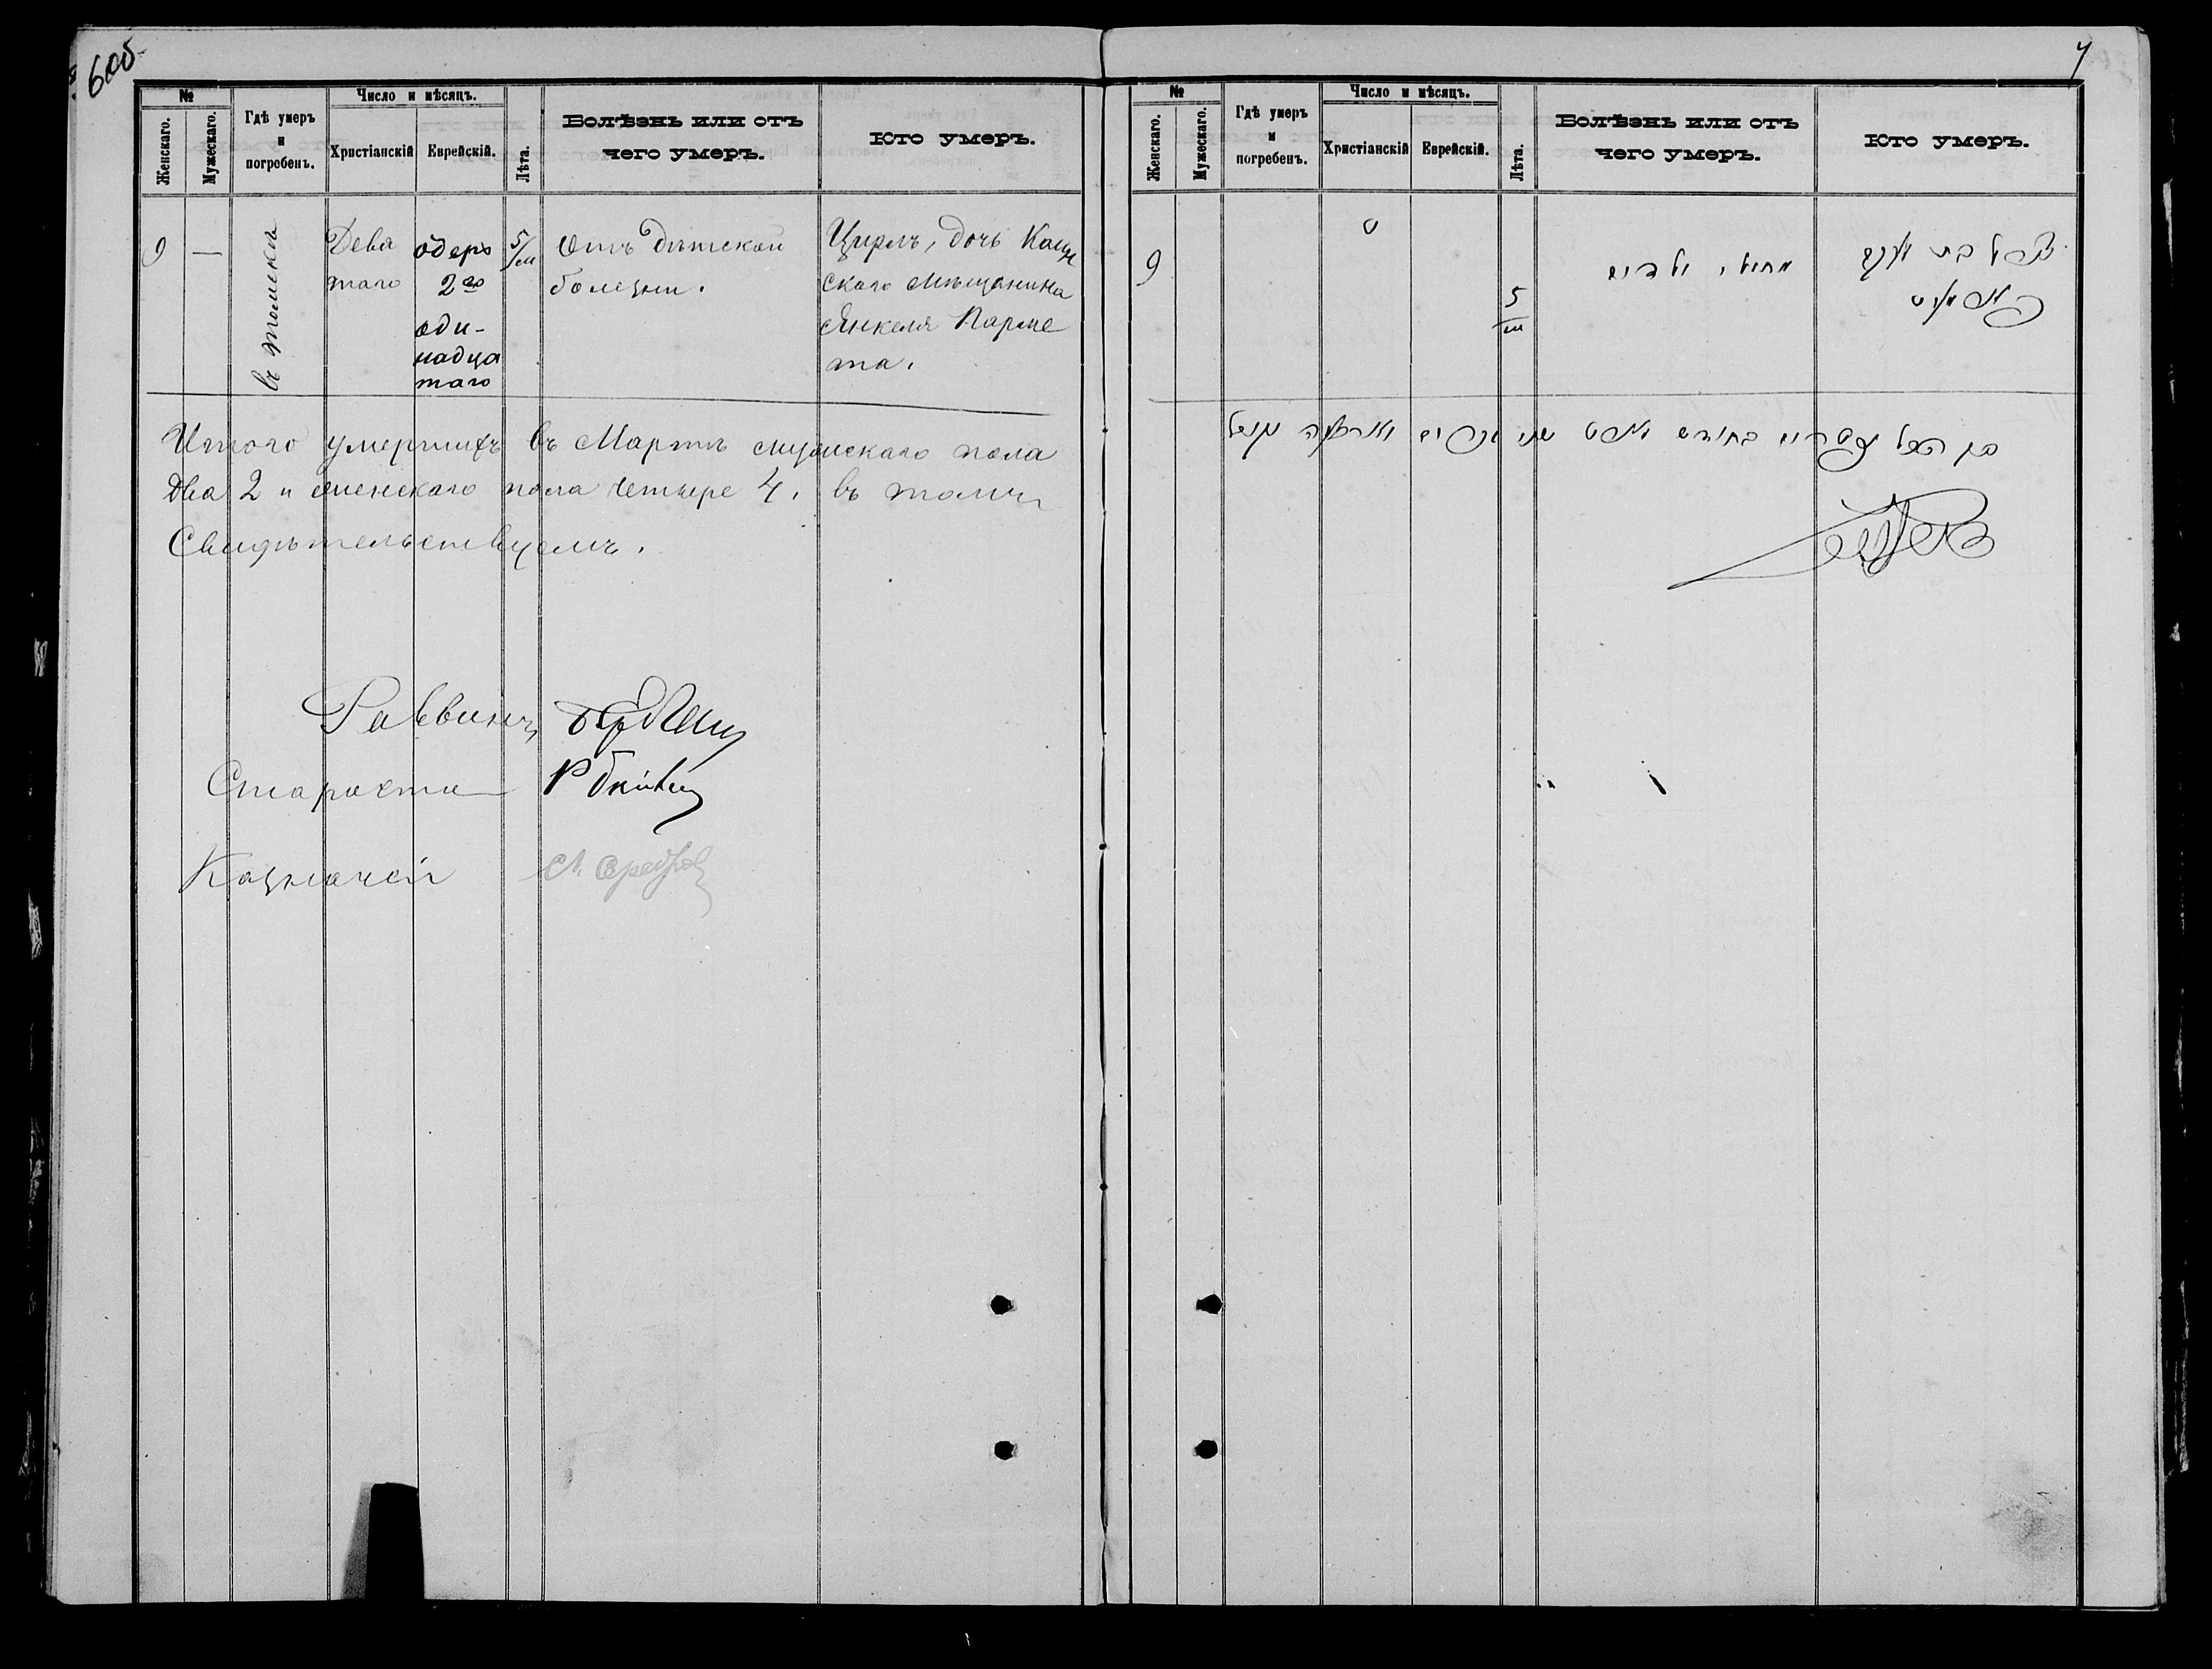 6 об
№
Женскаго.
Мужескаго.
Гдѣ умеръ
и
погребенъ.
Число и мѣсяцъ.
Христіанскій
Еврейскій.
Лѣта.
Болѣзнь или отъ
чего умеръ.
Кто умеръ.
9
—
въ Томскѣ
Девя
таго
одеръ
2го
оди-
надца
таго
5/м
Отъ дѣтской
болезни.
Цирль, дочь Каин
скаго Мѣщанина
Янкеля Парме
та.
Итого умершихъ въ Мартѣ мужскаго пола
два 2 и женскаго пола четыре 4, въ томъ
Свидѣтельствуемъ.
Раввинъ
Староста
Казначей
7
№
Женскаго.
Мужескаго.
Гдѣ умеръ
и
погребенъ.
Число и мѣсяцъ.
Христіанскій
Еврейскій.
Лѣта.
Болѣзнь или отъ
чего умеръ.
Кто умеръ.
9
5
м
מחולי ילדים
בת יעקב
סך הכל בחודש מארט שני זכרים וארבעה